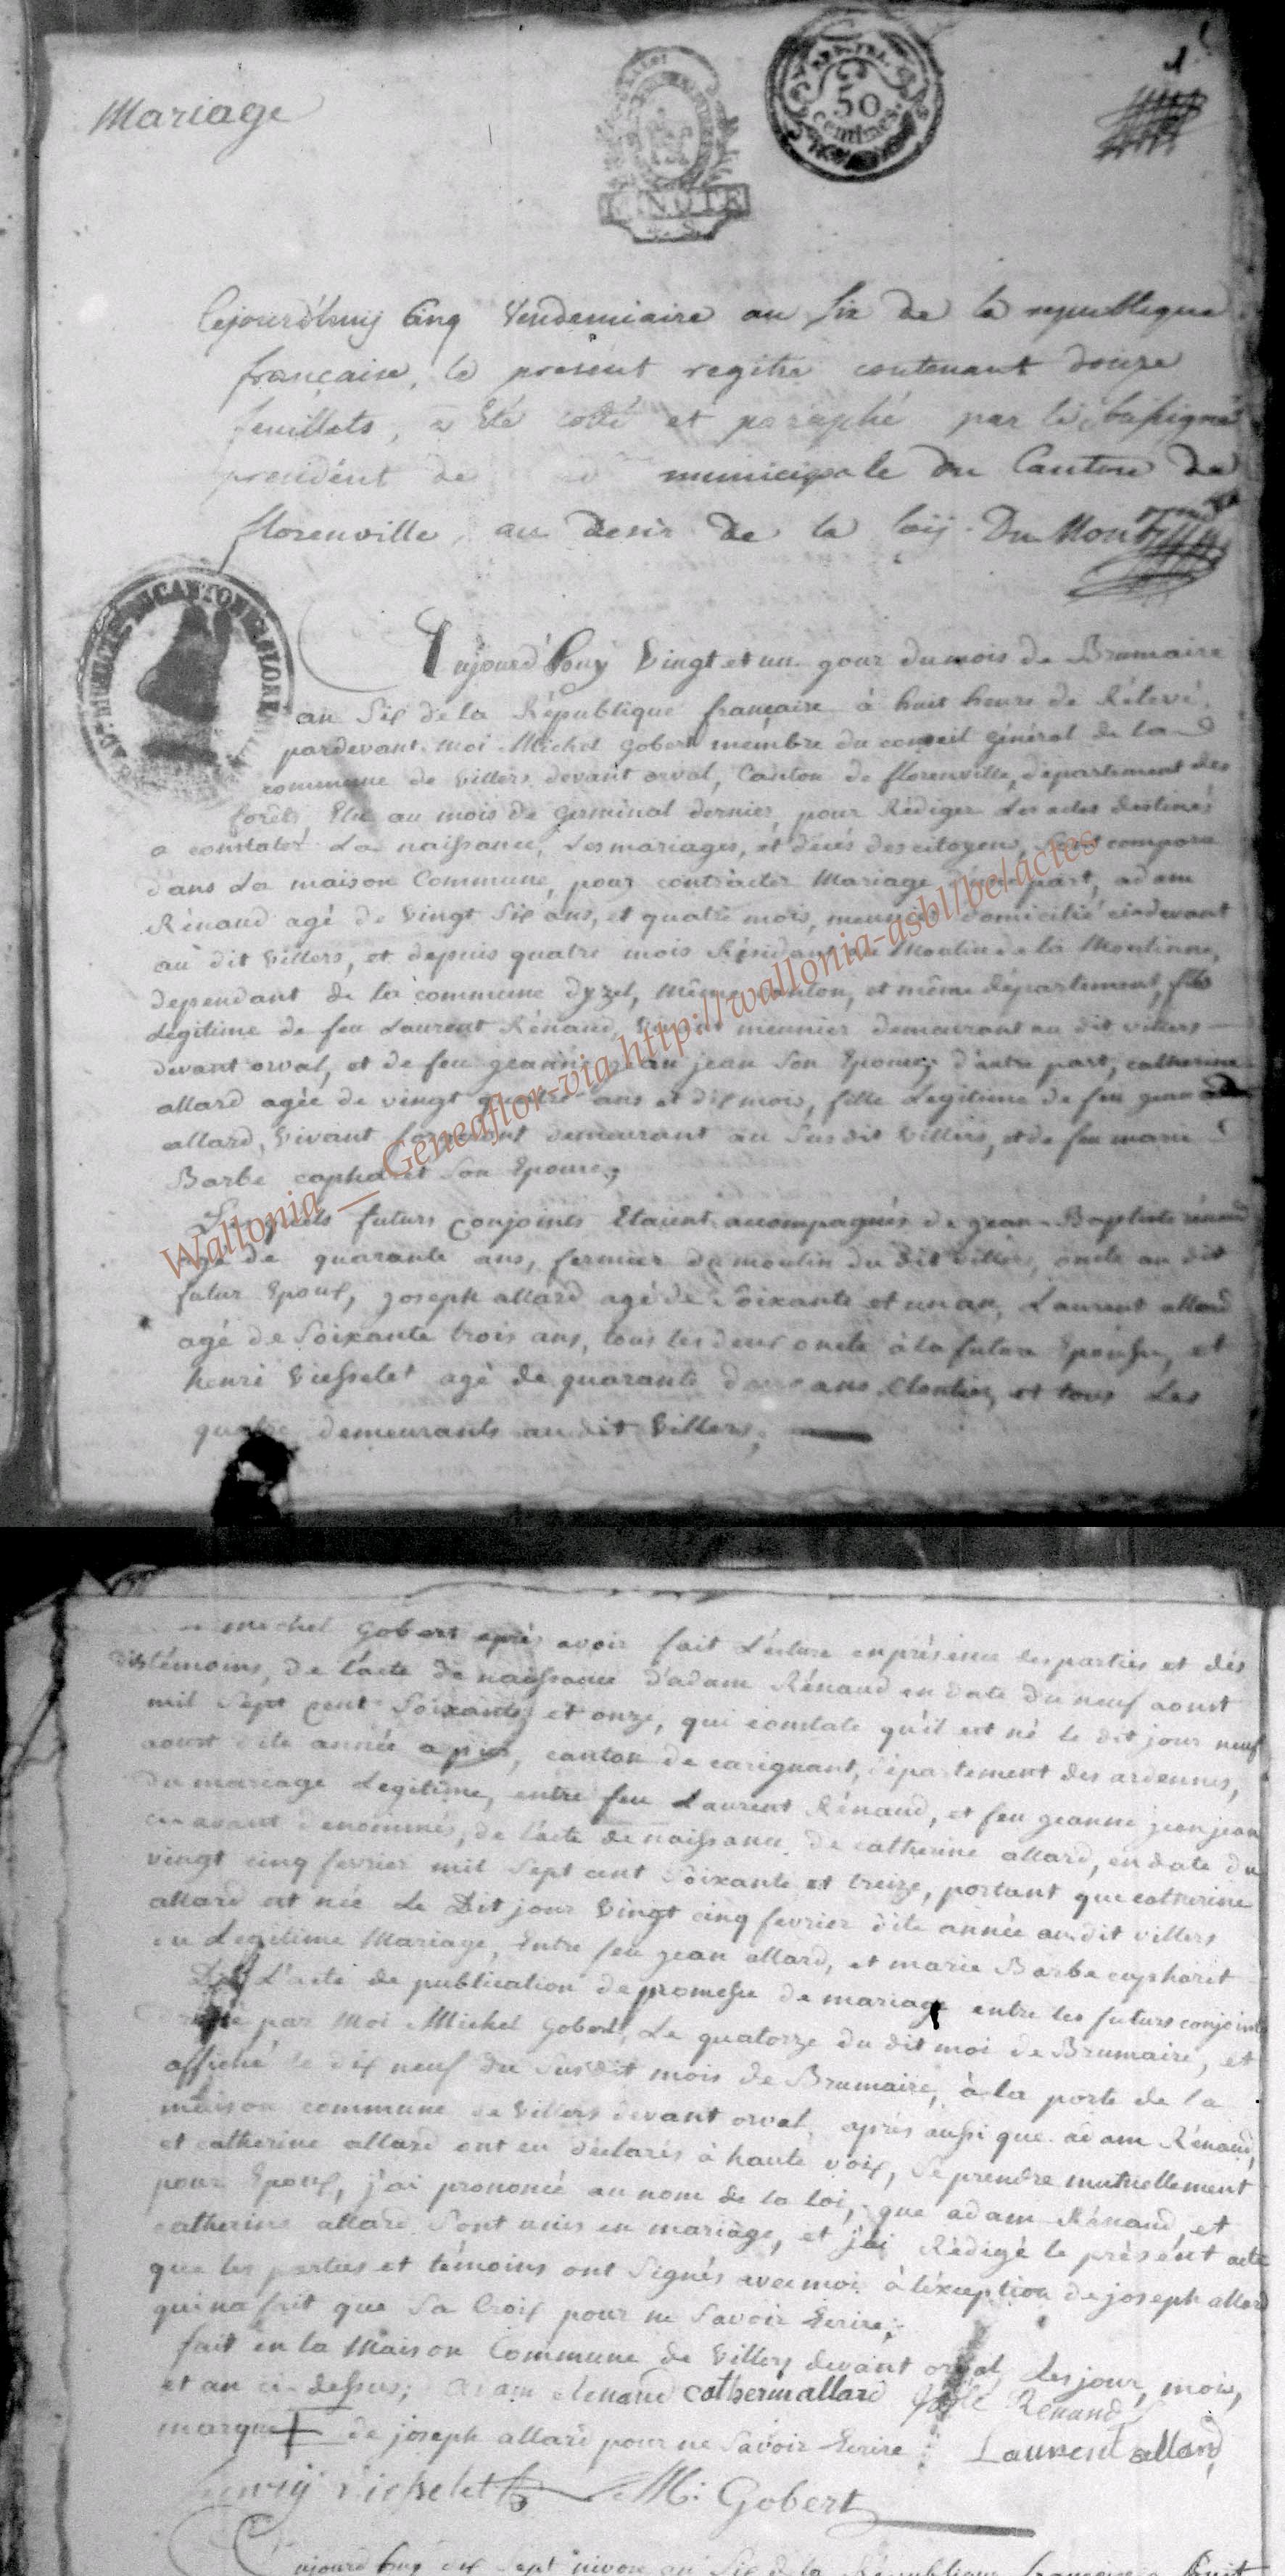 Mariage
50
centimes.
MINUTE
1
Cejourd'huij Cinq Vendemiaire an Six de la republique
française, le present regitre contenant douze
feuillets, a Eté cotté et paraphé par le soussigné
president de municipale du Canton de
florenville, au desir de la loij. Du Mont
Aujourd'houy Vingt et un jour du mois de Brumaire
an Six de la République française à huit heure de Rélevé,
pardevant moi Michel Gobert mémbre du conseil général de la
commune de Villers devant orval, Canton de florenville, département des
forêts, Elu au mois de Germinal dernier, pour Rédiger Les actes destinés
a constater La naissance, Les mariages, et décés des citoyens, Sont comparu
dans La maison Commune, pour contracter Mariage d'une part, adam
Rénaud agé de Vingt Six ans, et quatre mois, meunier domicilié cindevant
au dit Villers, et depuis quatre mois Résidant au Moulin de la Moulinne,
dependant de la commune dyzel, même canton, et même département, fils
Légitime de feu Laurent Rénaud, meunier demeurant au dit villers
devant orval, et de feu jeanne jean jean Son Epouse; d'autre part, catherine
allard agée de vingt quatre ans et dix mois, fille Legitime de feu jean
allard, Vivant demeurant au Susdit Villers, et de feu marie
Barbe capharet Son Epouse;
Lesquels futurs conjoints Etaient accompagnés de jean-Baptiste rénaud
agé de quarante ans, fermier du moulin du dit villers, oncle au dit
futur Epoux, joseph allard agé de Soixante et un an, Laurent allard
agé de Soixante trois ans, tous les deux oncle à la future Epouse, et
henri Viesselet agé de quarante ans Cloutier, et tous Les
quatre demeurants au dit Villers;
Wallonia__Geneaflor-via http://wallonia-asbl/be/actes
michel Gobert après avoir fait Lecture en présence des parties et dés
dits témoins, de l'acte de naissance d'adam Rénaud en date du neuf aoust
mil Sept cent Soixante et onze, qui constate qu'il est né le dit jour neuf
aoust dite année a pure, canton de carignant, département des ardennes,
du mariage Legitime, entre feu Laurent Rénaud, et feu jeanne jean jean
ci avant dénommés, de l'acte de naissance de catherine allard, en date du
vingt cinq fevrier mil Sept cent Soixante et treize, portant que catherine
allard est née Le Dit jour Vingt cinq fevrier dite année audit villers
en Legitime Mariage, Entre feu jean allard, et marie Barbe capharet
De L'acte de publication de promesse de mariage entre les futurs conjoints
par Moi Michel Gobert, Le quatorze du dit moi de Brumaire, et
affiché le dix neuf du Susdit mois de Brumaire, à la porte de la
maison commune de Villers devant orval, après aussi que adam Rénaud,
et catherine allard ont eu déclarés à haute voix, Se prendre mutuellement
pour Epoux, j'ai prononcé au nom de la loi, que adam Rénaud, et
catherine allard Sont unis en mariage, et j'ai Rédigé le présént acte
que les parties et témoins ont Signés avec moi à l'éxception de joseph allard
qui na fait que Sa Croix pour ne Savoir Ecrire;
fait en la Maison Commune de Villers devant orval, Les jour, mois,
et an ci-dessus; adam Renaud catherin allard Renaud
marque + de joseph allard pour ne Savoir Ecrire; Laurent allard
henrij Viesselet M: Gobert
Aujourd'houy dix Sept nivose an Six de la République française a huit